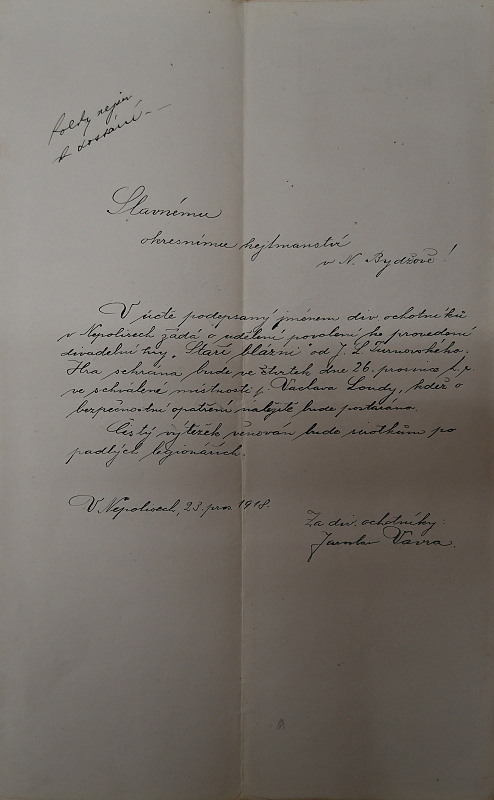 nejsou
k dostání
Slavnému
okresnímu hejtmanství
v N. Bydžově!
V úctě podepsaný jménem div. ochotníků
v Nepolisech žádá o udělení povolení ku provedení
divadelní hry „Staří blázni" od J. L. Turnovského.
Hra sehrána bude ve čtvrtek dne 26. prosince t. r.
ve schválené místnosti p. Václava Loudy, kdež o
bezpečnostní opatření náležitě bude postaráno.
Čistý výtěžek věnován bude sirotkům po
padlých legionářích.
V Nepolisech, 23. pros. 1918.
Za div. ochotníky:
Jaroslav Vávra.